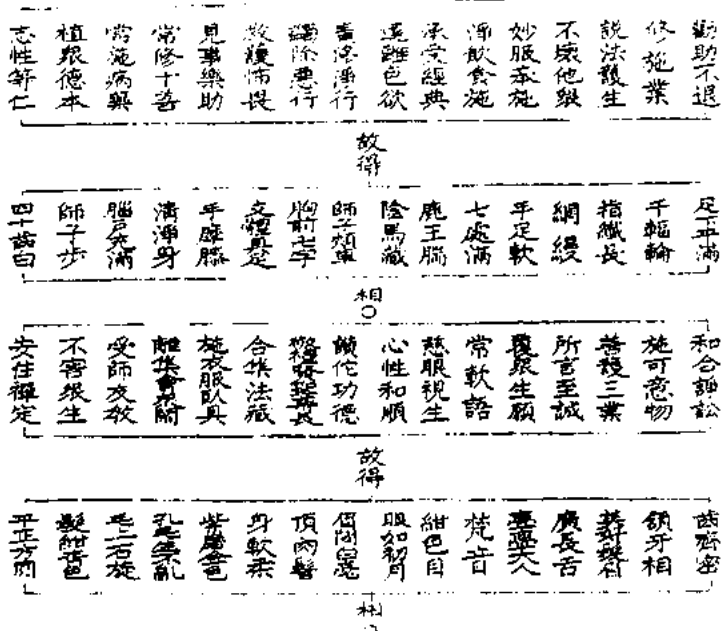 勸助不退
修施業
説法護生
不壞他眾
妙服奉施
淨飲食施
承受經典
遠離色欲
淨行
蠲除惡行
救護怖畏
見事樂助
常修十善
常施病藥
植眾德本
志性等仁
故得
足下平滿
千輻輪
指纖長
網縵
手足軟
七處滿
鹿王腨
陰馬藏
師子頰車
胸前卍字
支體具足
手摩膝
清淨身
腦戸充滿
師子步
四十齒白
相
○
和合諍訟
施可意物
善護三業
所言至誠
眾生願
常軟語
慈眼視生
心性和順
讚佗功德
合集法藏
施衣服臥具
離集會
受師友教
不害眾生
安住禪定
故得
齒齊密
頷牙相
廣長舌
梵音
紺色目
眼如初月
眉間白毫
頂肉髻
身軟柔
紫磨金色
孔毛亂
右旋
髮紺青色
平正方
相